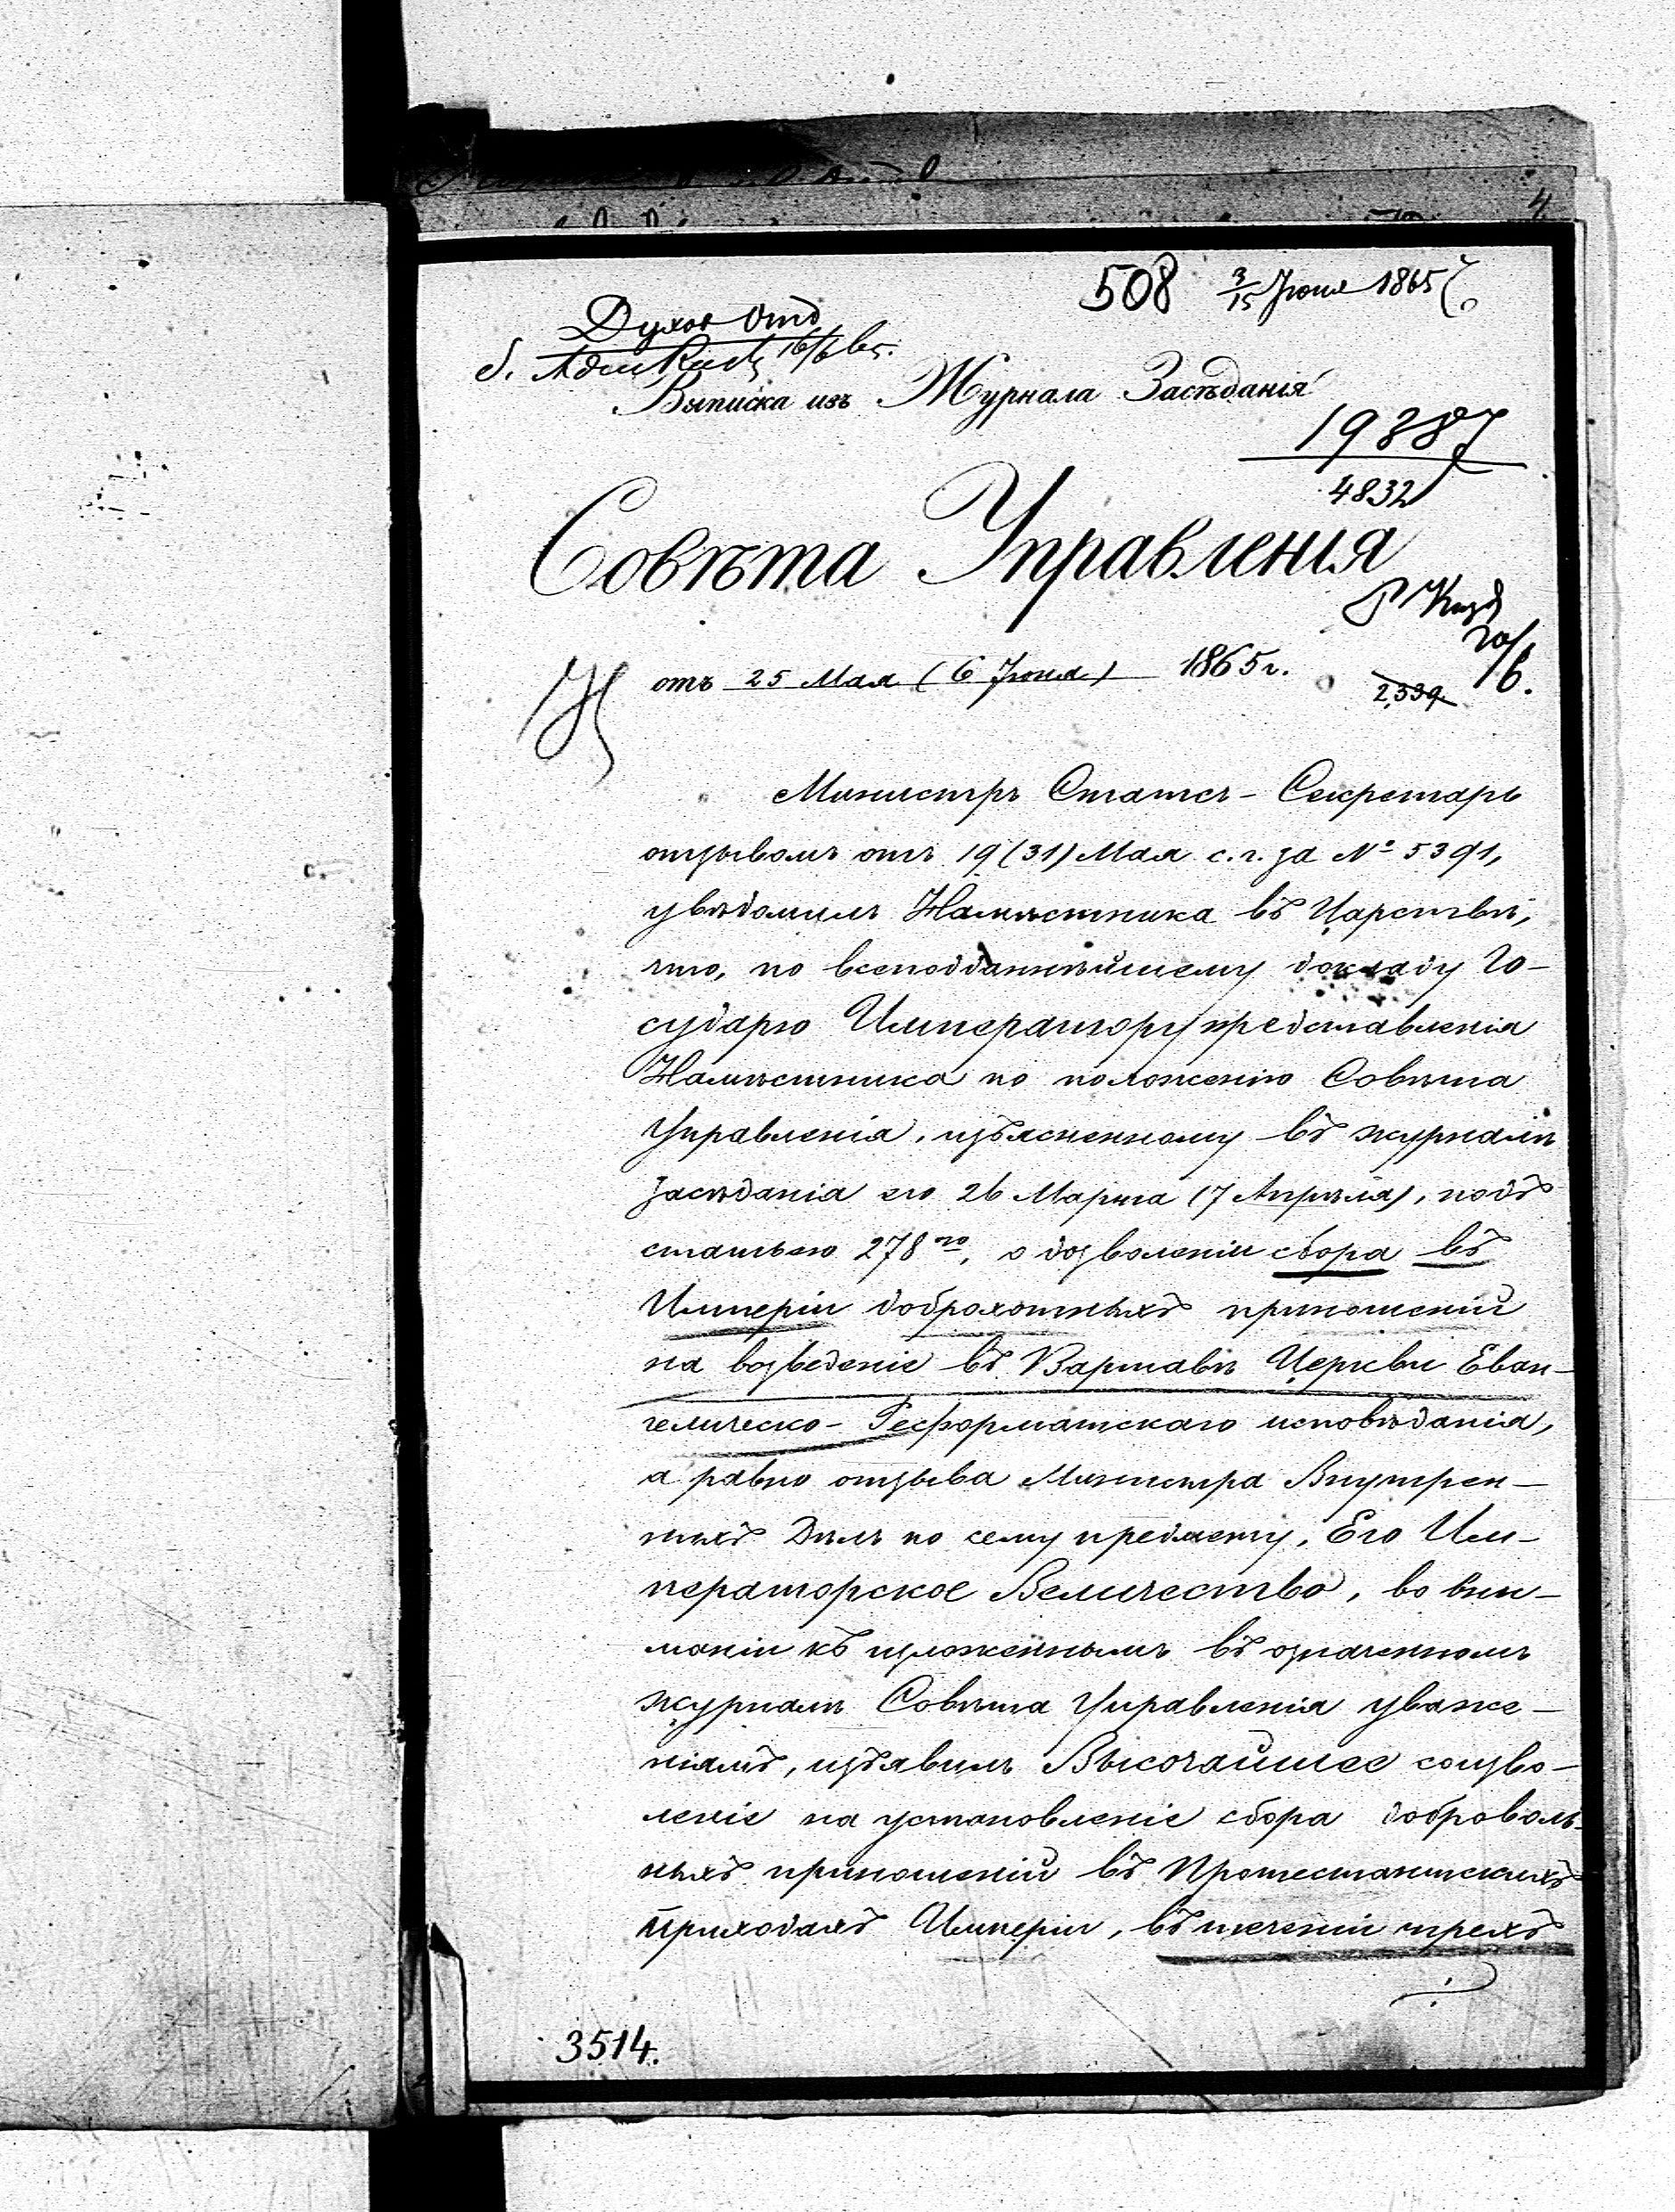 4
508 3/15 Іюня 1865
Духов Отд
16/6 65.
Выписка изъ Журнала Засѣданія
19387
4832
Совѣта Управленія
20/6.
отъ 25 Мая (6 Іюня) 1865 г.
2,539
Министръ Статсъ-Секретарь
отзывомъ отъ 19 (31) Мая с. г. за № 5391,
увѣдомилъ Намѣстника въ Царствѣ,
что, по всеподданнѣйшему докладу Го-
сударю Императору представленія
Намѣстника по положенію Совѣта
Управленія, изъясненному въ журналѣ
засѣданія его 26 Марта (7 Апрѣля), подъ
статьею 278ю, о дозволеніи сбора въ
Имперіи доброхотныхъ приношеній
на возведеніе въ Варшавѣ Церкви Еван-
гелическо-Реформатскаго исповѣданія,
а равно отзыва Министра Внутрен-
нихъ Дѣлъ по сему предмету, Его Им-
ператорское Величество, во вни-
маніи къ изложеннымъ въ означенномъ
журналѣ Совѣта Управленія уваже-
ніямъ, изъявилъ Высочайшее соизво-
леніе на установленіе сбора доброволь-
ныхъ приношеній въ Протестантскихъ
приходахъ Имперіи, въ теченіи трехъ
3514.